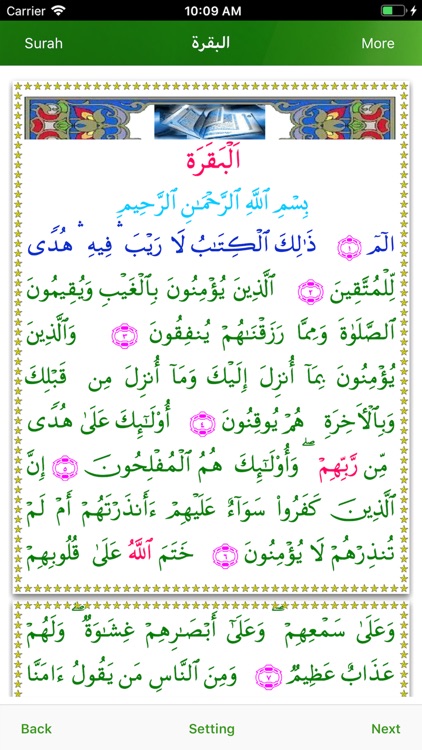 Carrier 10:09 AM
Surah البقرة More
اَلْبَقَرَة
بِسْمِ ٱللَّهِ ٱلرَّحْمَـٰنِ ٱلرَّحِيمِ
الٓمٓ ١ ذَٰلِكَ ٱلْكِتَـٰبُ لَا رَيْبَ ۛ فِيهِ ۛ هُدًى
لِّلْمُتَّقِينَ ٢ ٱلَّذِينَ يُؤْمِنُونَ بِٱلْغَيْبِ وَيُقِيمُونَ
ٱلصَّلَوٰةَ وَمِمَّا رَزَقْنَـٰهُمْ يُنفِقُونَ ٣ وَٱلَّذِينَ
يُؤْمِنُونَ بِمَآ أُنزِلَ إِلَيْكَ وَمَآ أُنزِلَ مِن قَبْلِكَ
وَبِٱلْأَخِرَةِ هُمْ يُوقِنُونَ ٤ أُوْلَـٰٓئِكَ عَلَىٰ هُدًى
مِّن رَّبِّهِمْ ۖ وَأُوْلَـٰٓئِكَ هُمُ ٱلْمُفْلِحُونَ ٥ إِنَّ
ٱلَّذِينَ كَفَرُوا۟ سَوَآءٌ عَلَيْهِمْ ءَأَنذَرْتَهُمْ أَمْ لَمْ
تُنذِرْهُمْ لَا يُؤْمِنُونَ ٦ خَتَمَ ٱللَّهُ عَلَىٰ قُلُوبِهِمْ
وَعَلَىٰ سَمْعِهِمْ ۖ وَعَلَىٰٓ أَبْصَـٰرِهِمْ غِشَـٰوَةٌ ۖ وَلَهُمْ
عَذَابٌ عَظِيمٌ ٧ وَمِنَ ٱلنَّاسِ مَن يَقُولُ ءَامَنَّا
Back Setting Next